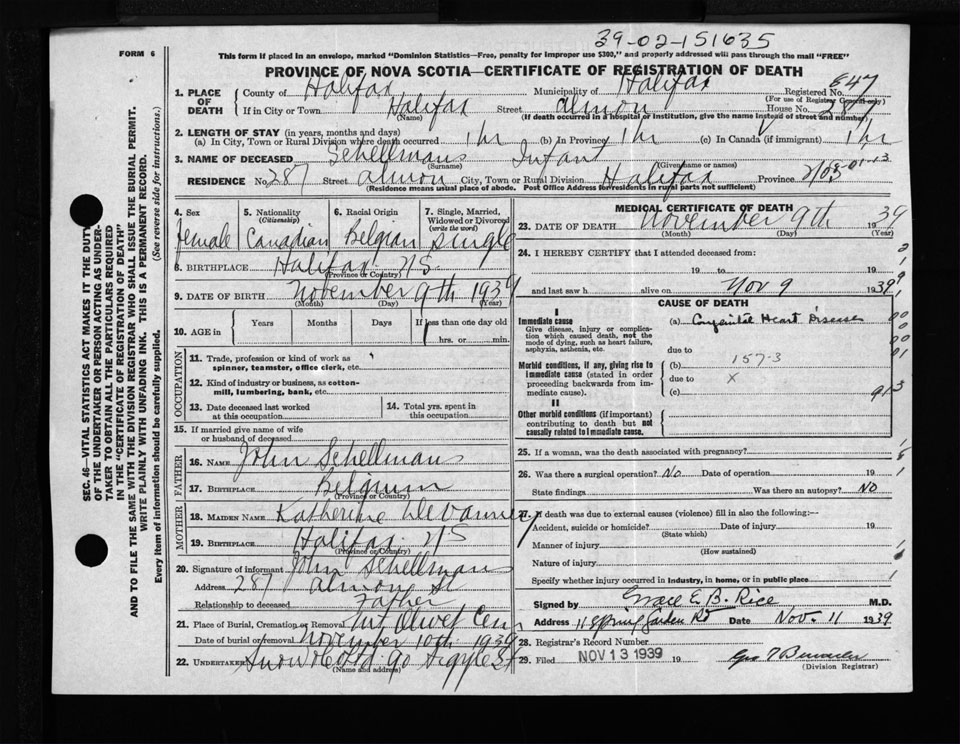 39-02-151635
FORM 6
This form if placed in an envelope, marked "Dominion Statistics—Free, penalty for improper use $300," and properly addressed will pass through the mail "FREE"
PROVINCE OF NOVA SCOTIA—CERTIFICATE OF REGISTRATION OF DEATH
1. PLACE OF DEATH County of Halifax Municipality of Halifax Registered No. 847
(For use of Registrar General only)
If in City or Town Halifax Street Almon House No. 287
(Name) (If death occurred in a hospital or institution, give the name instead of street and number)
2. LENGTH OF STAY (in years, months and days)
(a) In City, Town or Rural Division where death occurred 1 hr (b) In Province 1 hr (c) In Canada (if immigrant) 1 hr
3. NAME OF DECEASED Schellmans Infant
(Surname) (Given name or names)
RESIDENCE No. 287 Street Almon City, Town or Rural Division Halifax Province
(Residence means usual place of abode. Post Office Address for residents in rural parts not sufficient)
4. Sex Female
5. Nationality (Citizenship) Canadian
6. Racial Origin Belgian
7. Single, Married, Widowed or Divorced (write the word) Single
8. BIRTHPLACE Halifax NS
(Province or Country)
9. DATE OF BIRTH November 9th 1939
(Month) (Day) (Year)
10. AGE in Years Months Days If less than one day old
1 hrs. or min.
OCCUPATION
11. Trade, profession or kind of work as spinner, teamster, office clerk, etc.
12. Kind of industry or business, as cotton-mill, lumbering, bank, etc.
13. Date deceased last worked at this occupation
14. Total yrs. spent in this occupation
15. If married give name of wife or husband of deceased
FATHER
16. NAME John Schellmans
17. BIRTHPLACE Belgium
(Province or Country)
MOTHER
18. MAIDEN NAME Katherine
19. BIRTHPLACE Halifax NS
(Province or Country)
20. Signature of informant John Schellmans
Address 287 Almon St
Relationship to deceased Father
21. Place of Burial, Cremation or Removal Mt Olivet Cem
Date of burial or removal November 10th 1939
22. UNDERTAKER Snow & Co Ltd 90 Argyle St
(Name and address)
MEDICAL CERTIFICATE OF DEATH
23. DATE OF DEATH November 9th 1939
(Month) (Day) (Year)
24. I HEREBY CERTIFY that I attended deceased from:
19 to 19
and last saw h alive on Nov 9 1939
CAUSE OF DEATH
I
Immediate cause
Give disease, injury or complication which caused death, not the mode of dying, such as heart failure, asphyxia, asthenia, etc.
(a) Congenital Heart Disease
due to
Morbid conditions, if any, giving rise to immediate cause (stated in order proceeding backwards from immediate cause).
(b) 157-3
due to x
(c)
II
Other morbid conditions (if important) contributing to death but not causally related to immediate cause.
25. If a woman, was the death associated with pregnancy?
26. Was there a surgical operation? No Date of operation 19
State findings Was there an autopsy? No
27. If death was due to external causes (violence) fill in also the following:—
Accident, suicide or homicide? Date of injury 19
(State which)
Manner of injury
(How sustained)
Nature of injury
Specify whether injury occurred in industry, in home, or in public place
Signed by Grace E. B. Rice M.D.
Address 118 Spring Garden Rd Date Nov. 11 1939
28. Registrar's Record Number
29. Filed NOV 13 1939 19
(Division Registrar)
SEC. 46—VITAL STATISTICS ACT MAKES IT THE DUTY
OF THE UNDERTAKER OR PERSON ACTING AS UNDER-
TAKER TO OBTAIN ALL THE PARTICULARS REQUIRED
IN THE "CERTIFICATE OF REGISTRATION OF DEATH"
AND TO FILE THE SAME WITH THE DIVISION REGISTRAR WHO SHALL ISSUE THE BURIAL PERMIT.
WRITE PLAINLY WITH UNFADING INK. THIS IS A PERMANENT RECORD.
Every item of information should be carefully supplied. (See reverse side for instructions.)